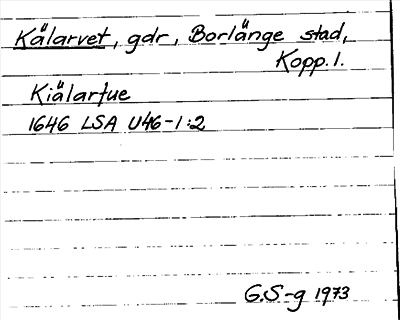 Kälarvet, gdr, Borlänge stad,
Kopp. l.
Kiälarfue
1646 LSA U46-1:2
G.S-g 1973